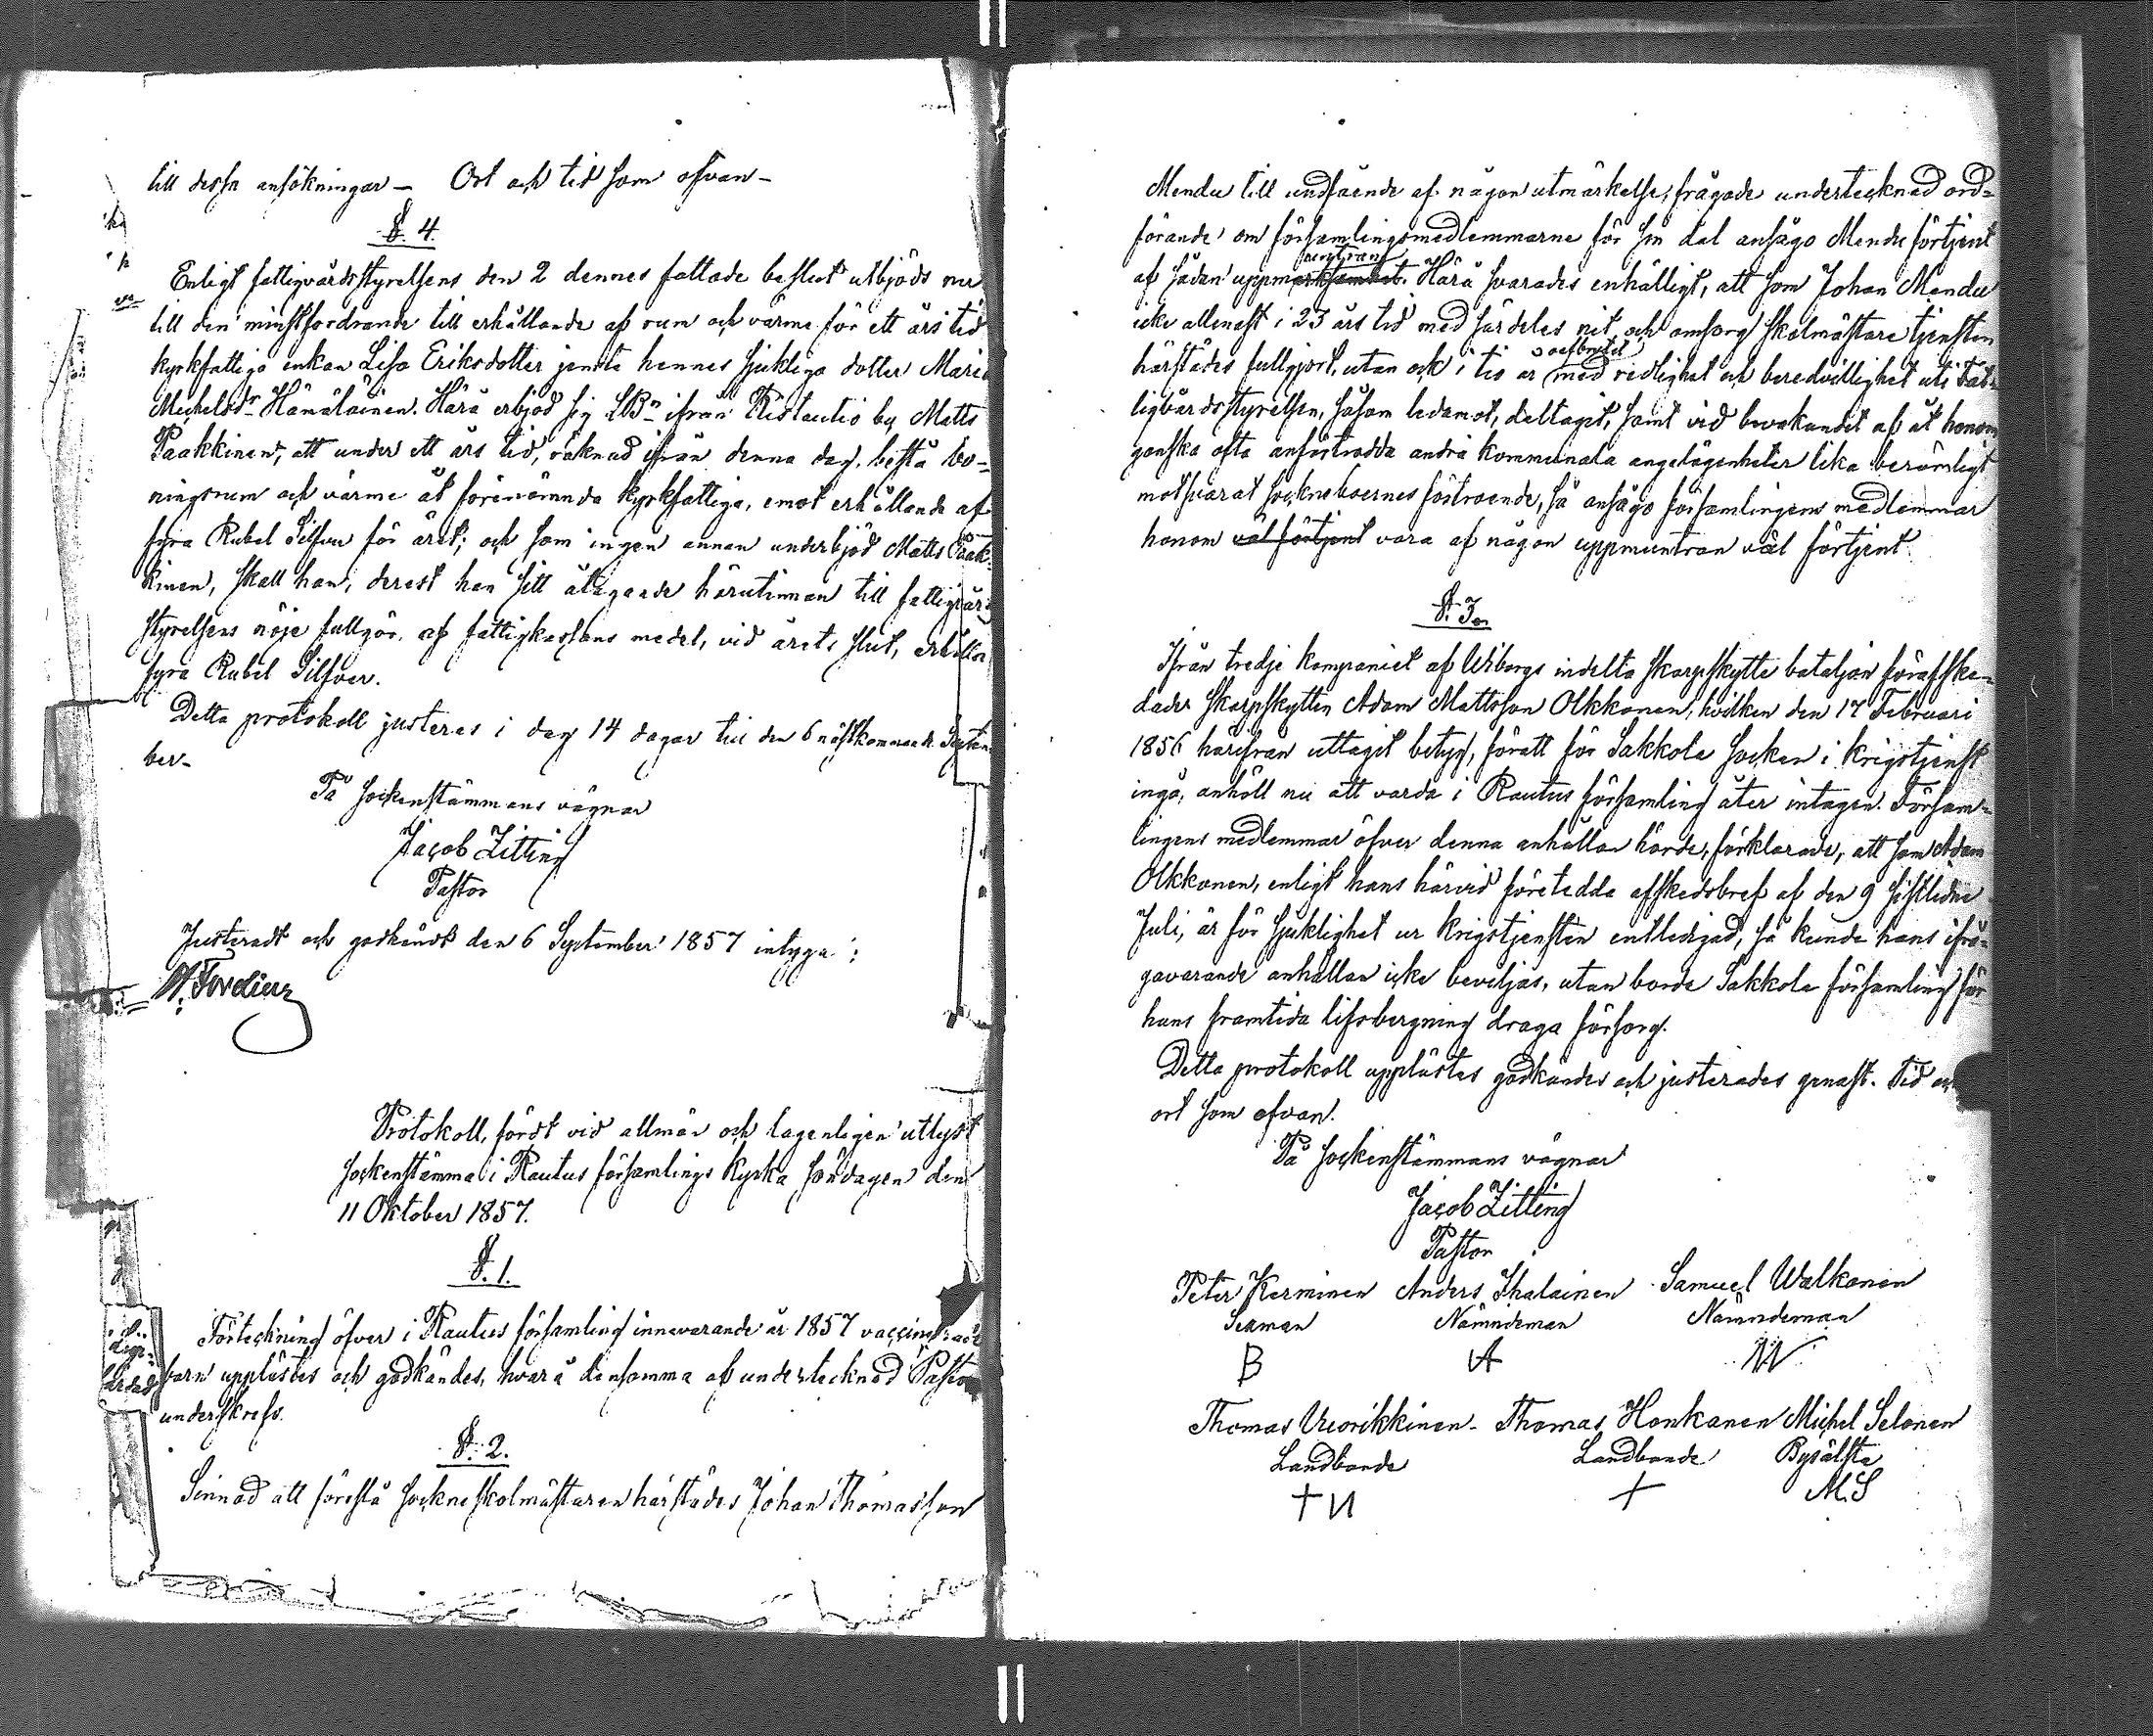 till dessa ansökningar – Ort och tid som ofvan –
§. 4.
Enligt fattigvårdsstyrelsens den 2 dennes fattade beslut utbjöds nu
till den minstfordrande till erhållande af rum och värme för ett års tid
kyrkfattiga enkan Lisa Eriksdotter jemte hennes sjukliga dotter Maria
Michelsdr Hämäläinen. Härå erbjöd sig LBn ifrån Ristautio by Matts
Paakkinen, att under ett års tid, räknad ifrån denna dag, bestå bo-
ningsrum och värme åt förenämnda kyrkfattiga, emot erhållande af
fyra Rubel Silfver för året; och som ingen annan underbjöd Matts Paak-
kinen, skall han, derest han sitt åtagande härutinnan till fattigvårds
styrelsens nöje fullgör, af fattigkassans medel, vid årets slut, erhålla
fyra Rubel Silfver.
Detta protokoll justeras i dag 14 dagar till den 6 nästkommande Septem
ber –
På sockenstämmans vägnar
Jacob Zitting
Pastor
Justeradt och godkändt den 6 September 1857 intyga:
Protokoll, fördt vid allmän och lagenligen utlyst
sockenstämma i Rautus församlings kyrka söndagen den
11 Oktober 1857.
§. 1.
Förteckning öfver i Rautus församling innevarande år 1857 vaccinerade
barn upplästes och godkändes, hvarå densamma af undertecknad Pastor
underskrefs.
§. 2.
Sinnad att föreslå sockneskolmästaren härstädes Johan Thomasson
Mendu till undfående af någon utmärkelse, frågade undertecknad ord-
förande om församlingsmedlemmarne för sin del ansågo Mendu förtjent
muntran
af sådan uppmärksamhet. Härå svarades enhälligt, att som Johan Mendu
icke allenast i 23 års tid med särdeles nit och omsorg skolmästare tjensten
oafbrutet
härstädes fullgjort, utan ock i tio år med redlighet och beredvillighet uti Fatt-
tigvårdsstyrelsen, såsom ledamot, deltagit, samt vid bevakandet af åt honom
ganska ofta anförtrodda andra kommunala angelägenheter lika berömligt
motsvarat socknboernes förtroende, så ansågo församlingens medlemmar
honom väl förtjent vara af någon uppmuntran väl förtjent.
§. 3.
Ifrån tredje kompaniet af Wiborgs indelta skarpskytte bataljon förafske-
dade Skarpskytten Adam Mattsson Olkkonen, hvilken den 17 Februari
1856 härifrån uttagit betyg, föratt för Sakkola socken i krigstjenst
ingå, anhöll nu att varda i Rautus församling åter intagen. Försam-
lingens medlemmar öfver denna anhållan hörde, förklarade, att som Adam
Olkkonen, enligt hans härvid företedda afskedsbref af den 9 sistledne
Juli, är för sjuklighet ur krigstjensten entledigad, så kunde hans ifrå-
gavarande anhållan icke beviljas, utan borde Sakkola församling för
hans framtida lifsbergning draga försorg.
Detta protokoll upplästes godkändes och justerades genast. Tid och
ort som ofvan.
På sockenstämmans vägnar
Jacob Zitting
Pastor
Peter Kerminen Anders Ihalainen Samuel Walkonen
Sexman Nämndeman Nämndeman
B A W
Thomas Vuorikkinen – Thomas Honkanen Michel Selonen
Landbonde Landbonde Byäldste
+ U + M.S